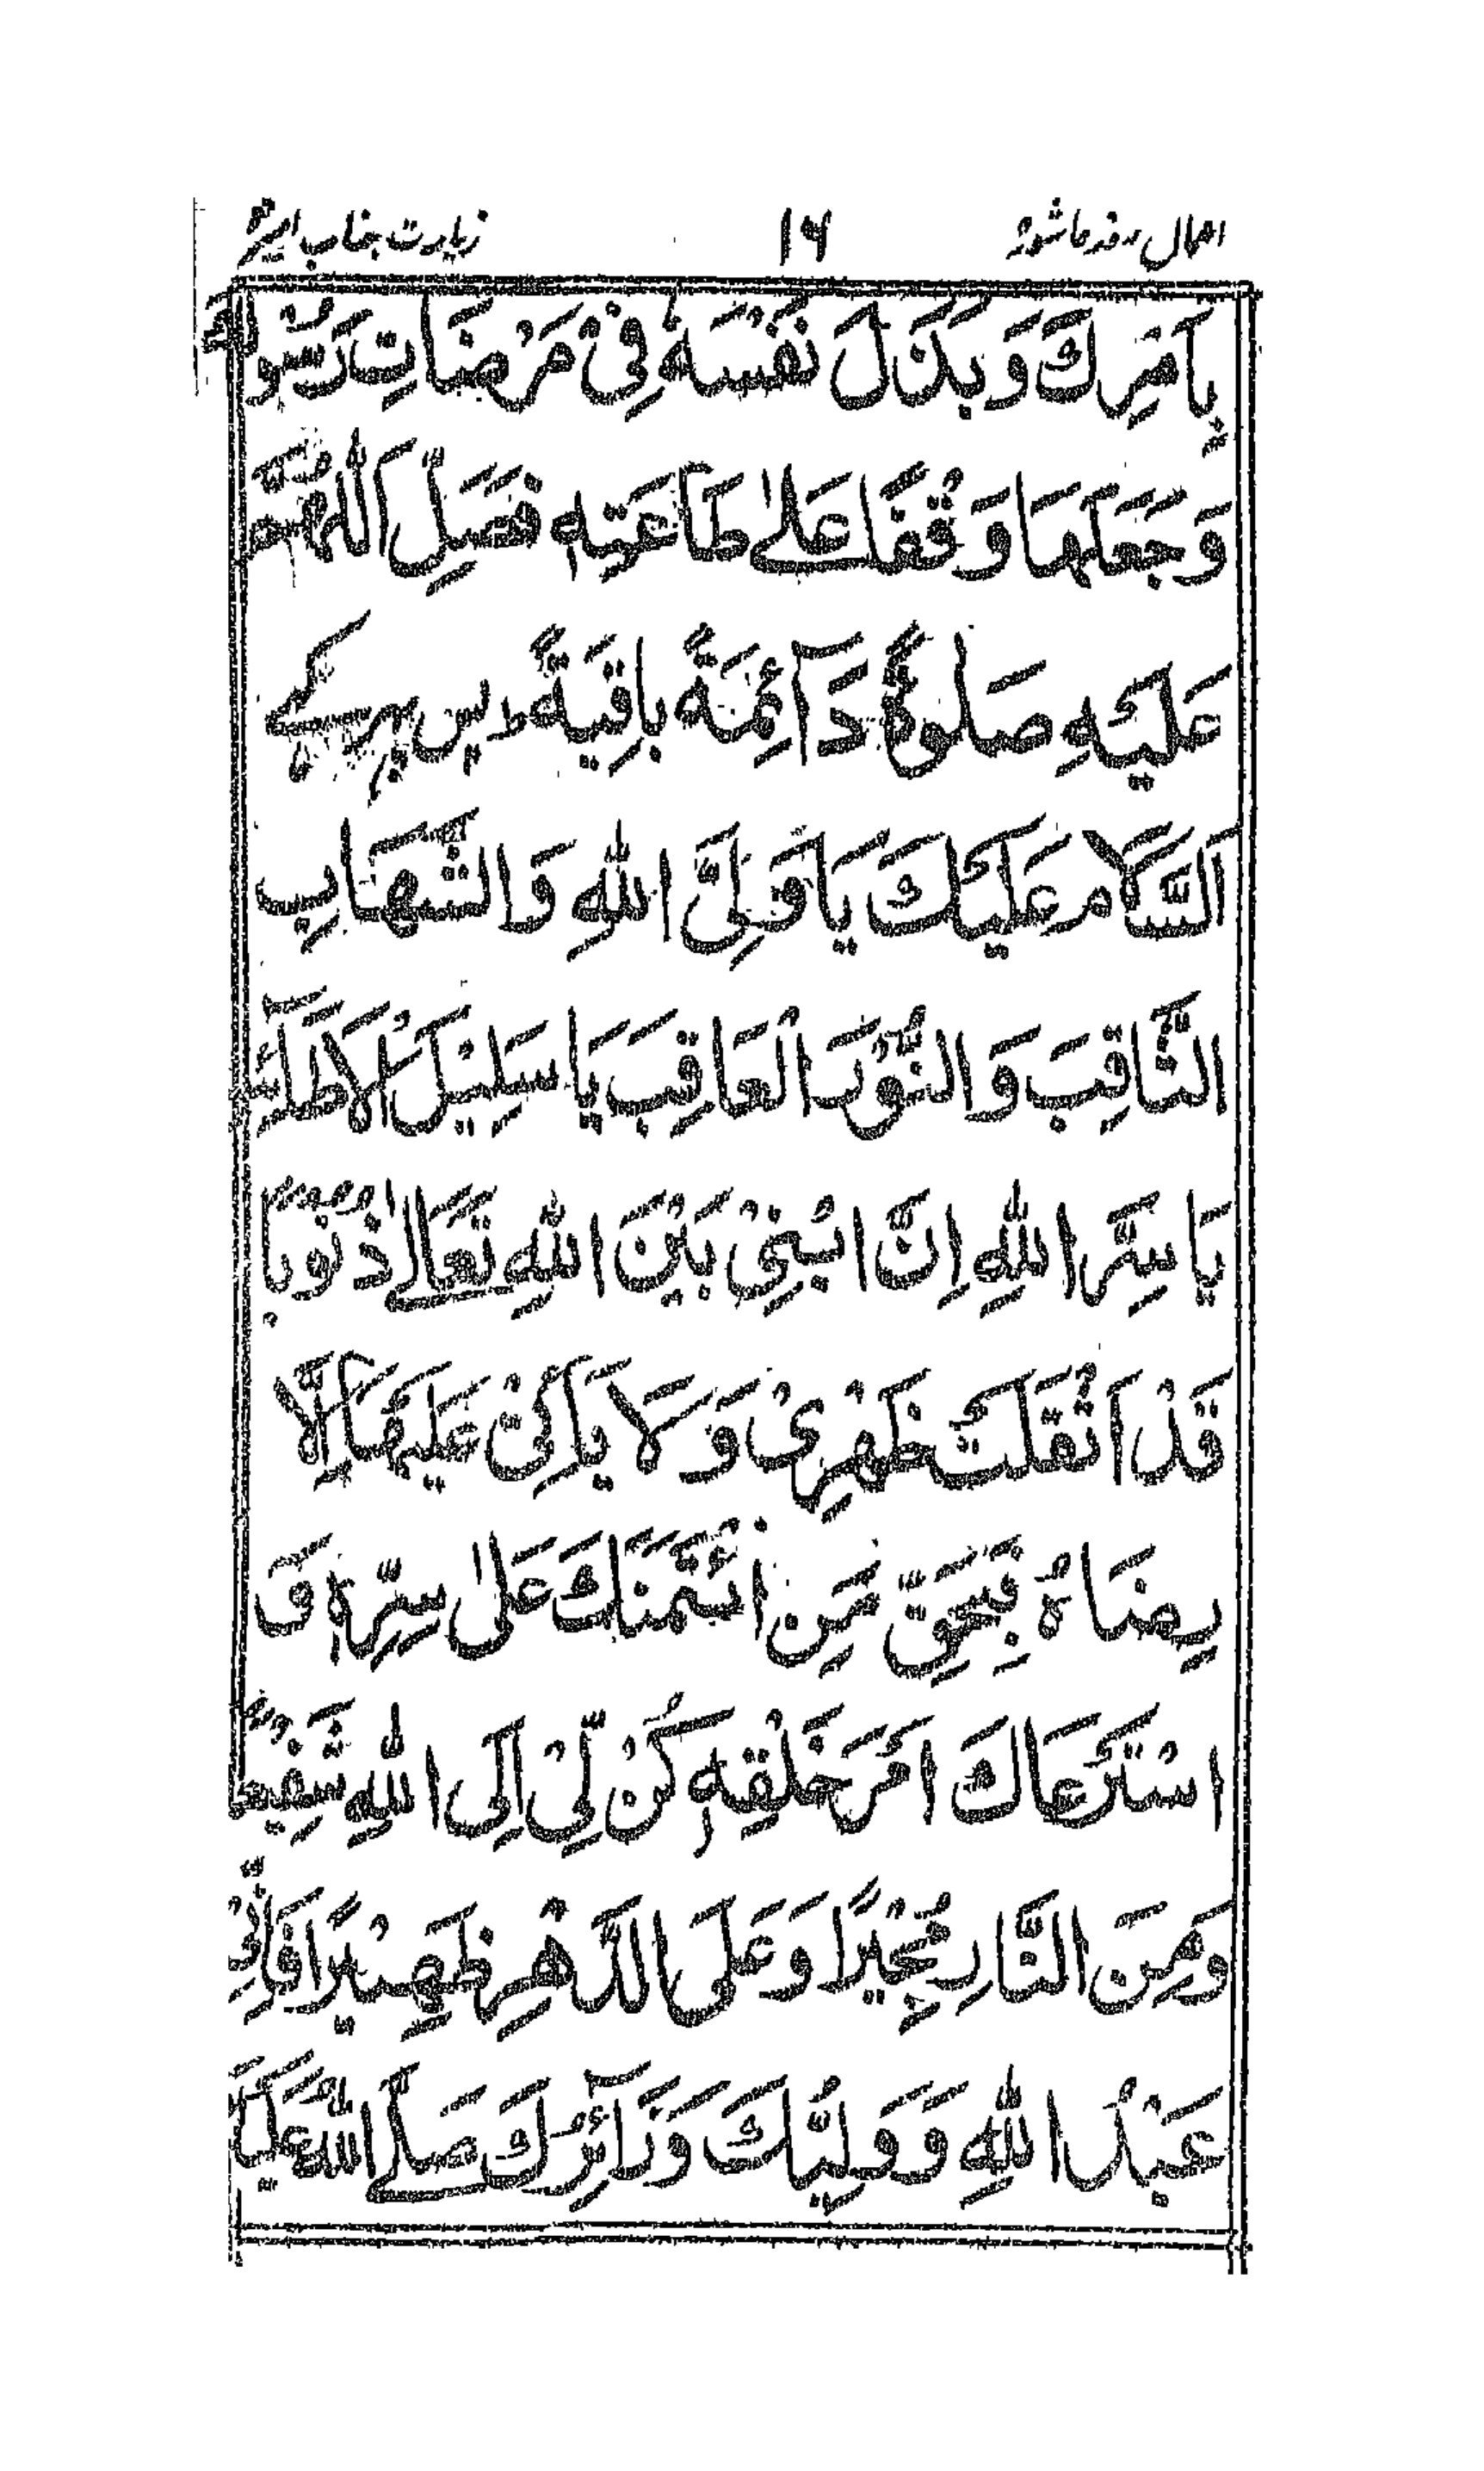 اعمال روز عاشورہ ۱۶ زیارت جناب امیرؑ
بِاَمْرِكَ وَبَذَلَ نَفْسَهٗ فِیْ مَرْضَاتِ رَسُوْلِكَ
وَجَعَلَهَا وَقْفًا عَلٰے طَاعَتِهٖ فَصَلِّ اَللّٰهُمَّ
عَلَيْهِ صَلٰوةً دَآئِمَةً بَاقِيَةً پس پھر کہے
اَلسَّلَامُ عَلَيْكَ يَا وَلِیَّ اللّٰهِ وَالشِّهَابِ
الثَّاقِبَ وَالنُّوْرَ الْعَاقِبَ يَا سَلِيْلَ الْاَطَآئِبِ
يَا سِرَّ اللّٰهِ اِنَّ بَيْنِیْ بَيْنَ اللّٰهِ تَعَالٰے ذُنُوْبًا
قَدْ اَثْقَلَتْ ظَهْرِیْ وَلَا يَاْتِیْ عَلَيْهَا اِلَّا
رِضَاهُ فَبِحَقِّ مَنِ ائْتَمَنَكَ عَلٰی سِرِّهٖ وَ
اسْتَرْعَاكَ اَمْرَ خَلْقِهٖ كُنْ لِّیْ اِلَی اللّٰهِ شَفِيْعًا
وَمِنَ النَّارِ مُجِيْرًا وَعَلَی الدَّهْرِ ظَهِيْرًا فَاِنِّیْ
عَبْدُ اللّٰهِ وَوَلِيُّكَ وَزَآئِرُكَ صَلَّے اللّٰهُ عَلَيْكَ